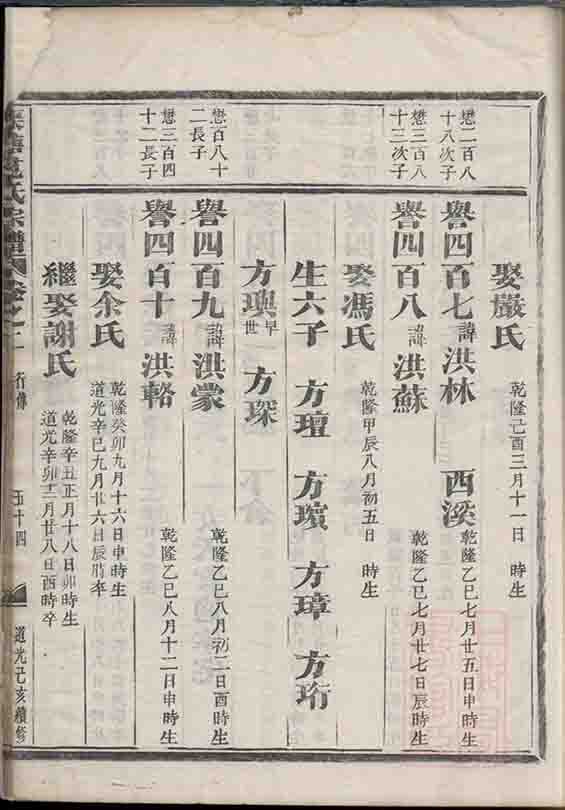 娶嚴氏 乾隆己酉三月十一日 時生
懋二百八十八次子
譽四百七諱洪林 西溪 乾隆乙巳七月廿五日申時生
懋三百八十三次子
譽四百八諱洪蘇 乾隆乙巳七月廿七日辰時生
娶馮氏 乾隆甲辰八月初五日 時生
生六子 方瓊 方璸 方璋 方珩
方璵早世 方琛
懋百八十二長子
譽四百九諱洪蒙 乾隆乙巳八月初二日酉時生
懋三百四十二長子
譽四百十諱洪輅 乾隆乙巳八月十二日申時生
娶余氏 乾隆癸卯九月十六日申時生 道光辛巳九月廿六日辰時卒
繼娶謝氏 乾隆辛丑正月十八日卯時生 道光辛卯十二月廿八日酉時卒
氏宗譜 卷之 行傳 五十四 道光己亥續修